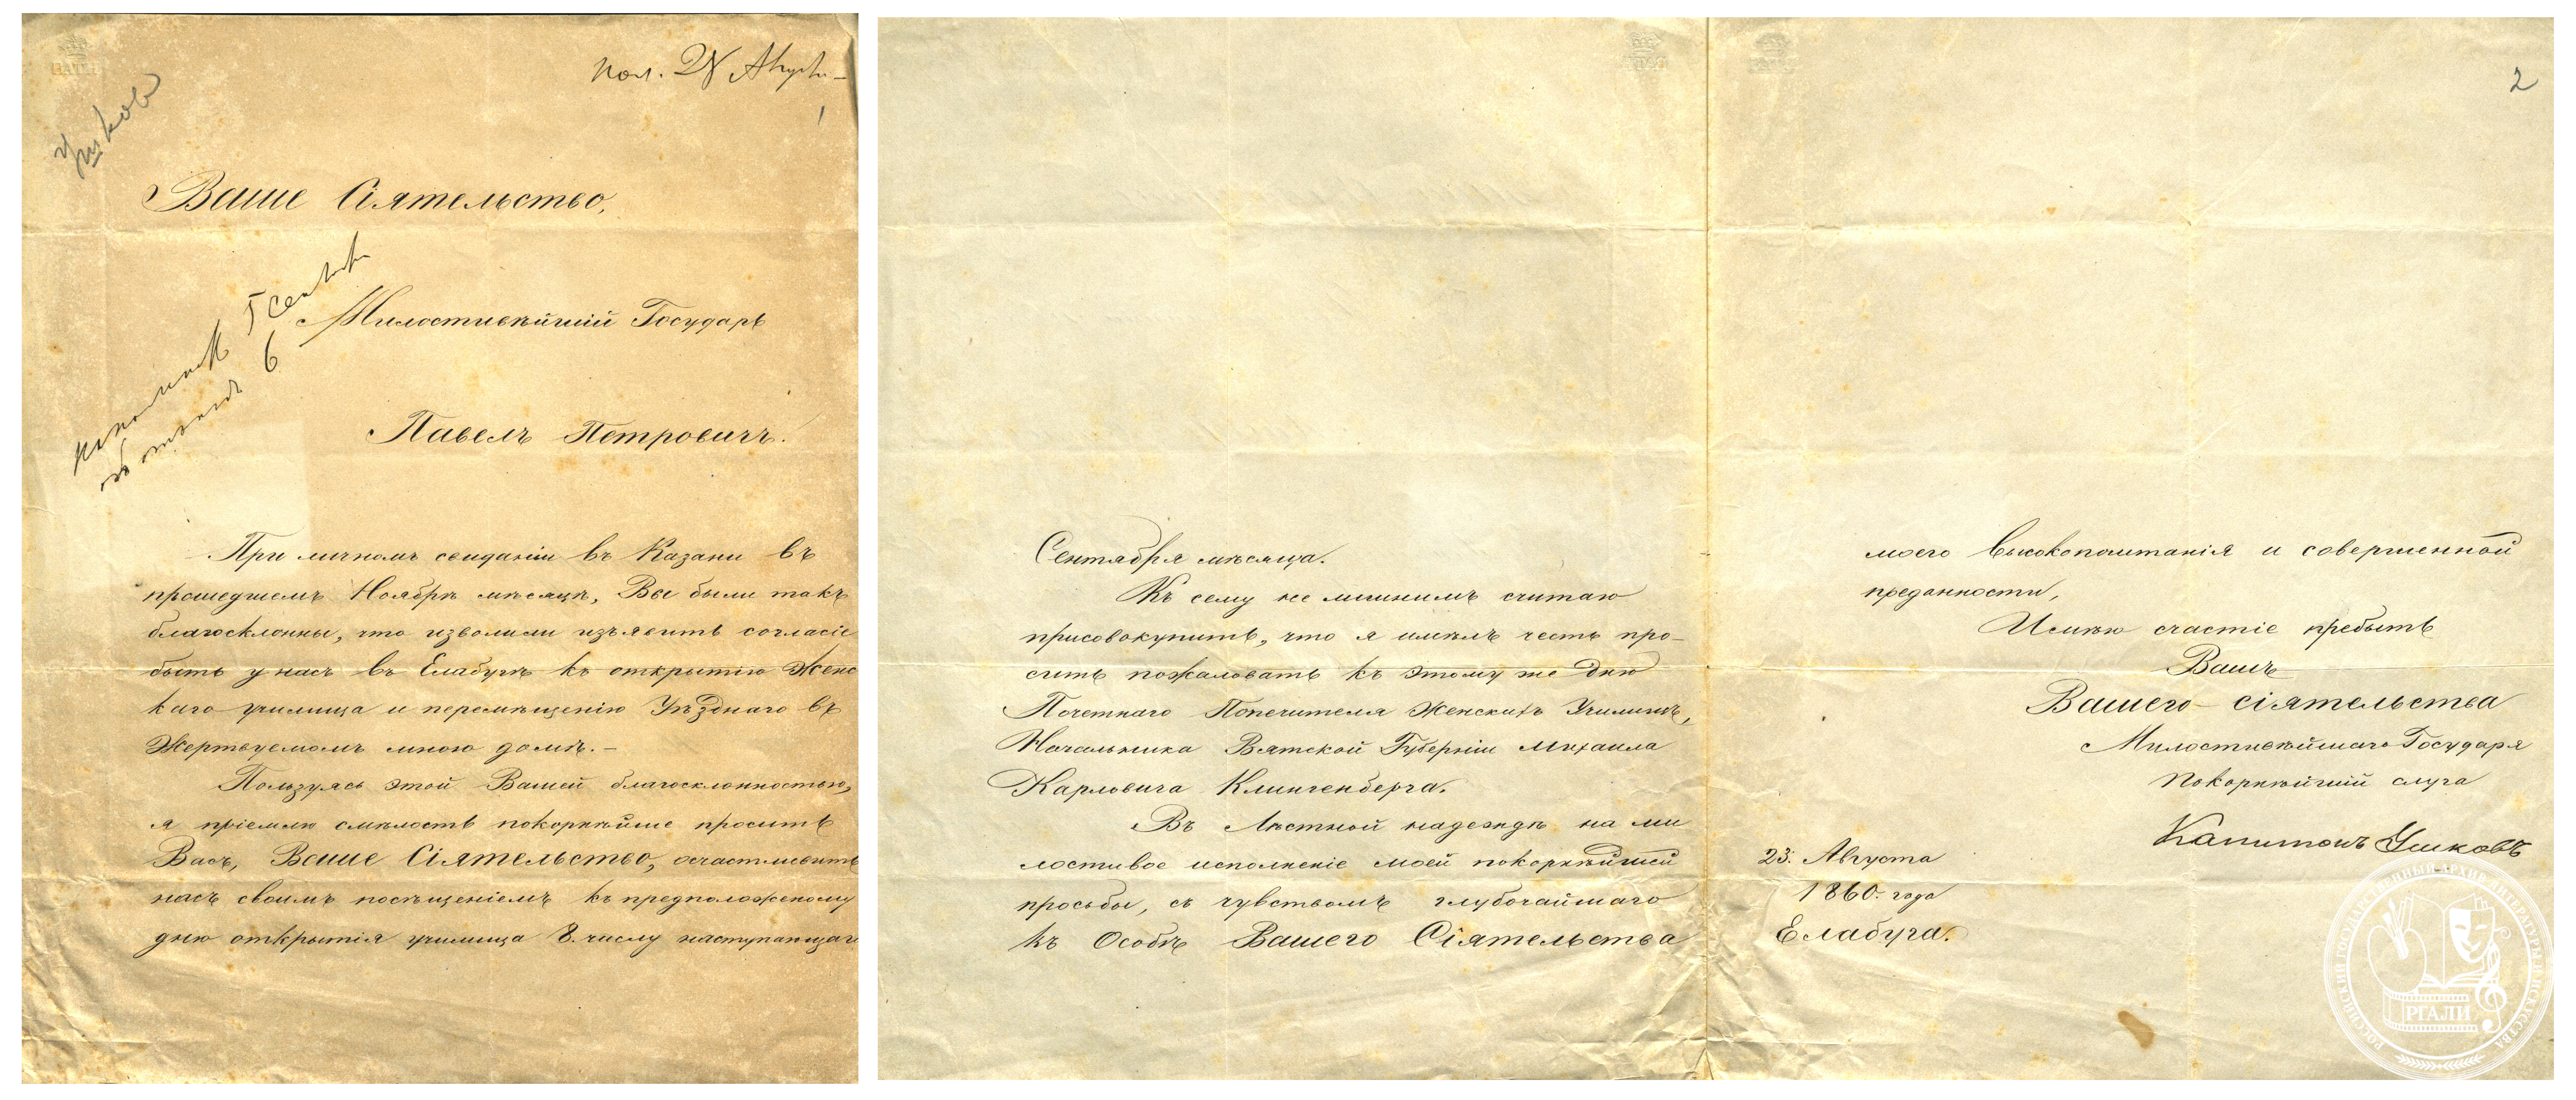 Ушковъ
пол. 28 Августа
1
Ваше Сіятельство,
Милостивѣйшій Государь
Павелъ Петровичъ.
При личномъ свиданіи въ Казани въ
прошедшемъ Ноябрѣ мѣсяцѣ, Вы были такъ
благосклонны, что изволили изъявить согласіе
быть у насъ въ Елабугѣ къ открытію Женс
каго училища и перемѣщенію Уѣзднаго въ
Жертвуемомъ мною домѣ.–
Пользуясь этой Вашей благосклонностью,
я пріемлю смѣлость покорнѣйше просить
Васъ, Ваше Сіятельство, осчастливить
насъ своимъ посѣщеніемъ къ предположеному
дню открытія училища 8. числу наступающаго
Сентября мѣсяца.
Къ сему не лишнимъ считаю
присовокупить, что я имѣлъ честь про–
сить пожаловать къ этому же дню
Почетнаго Попечителя Женскихъ Училищъ,
Начальника Вятской Губерніи Михаила
Карловича Клингенберга.
Въ Лѣстной надеждѣ на ми
лостивое исполненіе моей покорнѣйшей
просьбы, съ чувствомъ глубочайшаго
къ Особѣ Вашего Сіятельства
2
моего высокопочитанія и совершенной
преданности,
Имѣю счастіе пребыть
Вашъ
Вашего сіятельства
Милостивѣйшаго Государя
Покорнѣйшій слуга
Капитонъ Ушковъ
23. Августа
1860. года
Елабуга.
РОССИЙСКИЙ ГОСУДАРСТВЕННЫЙ АРХИВ ЛИТЕРАТУРЫ И ИСКУССТВА
РГАЛИ